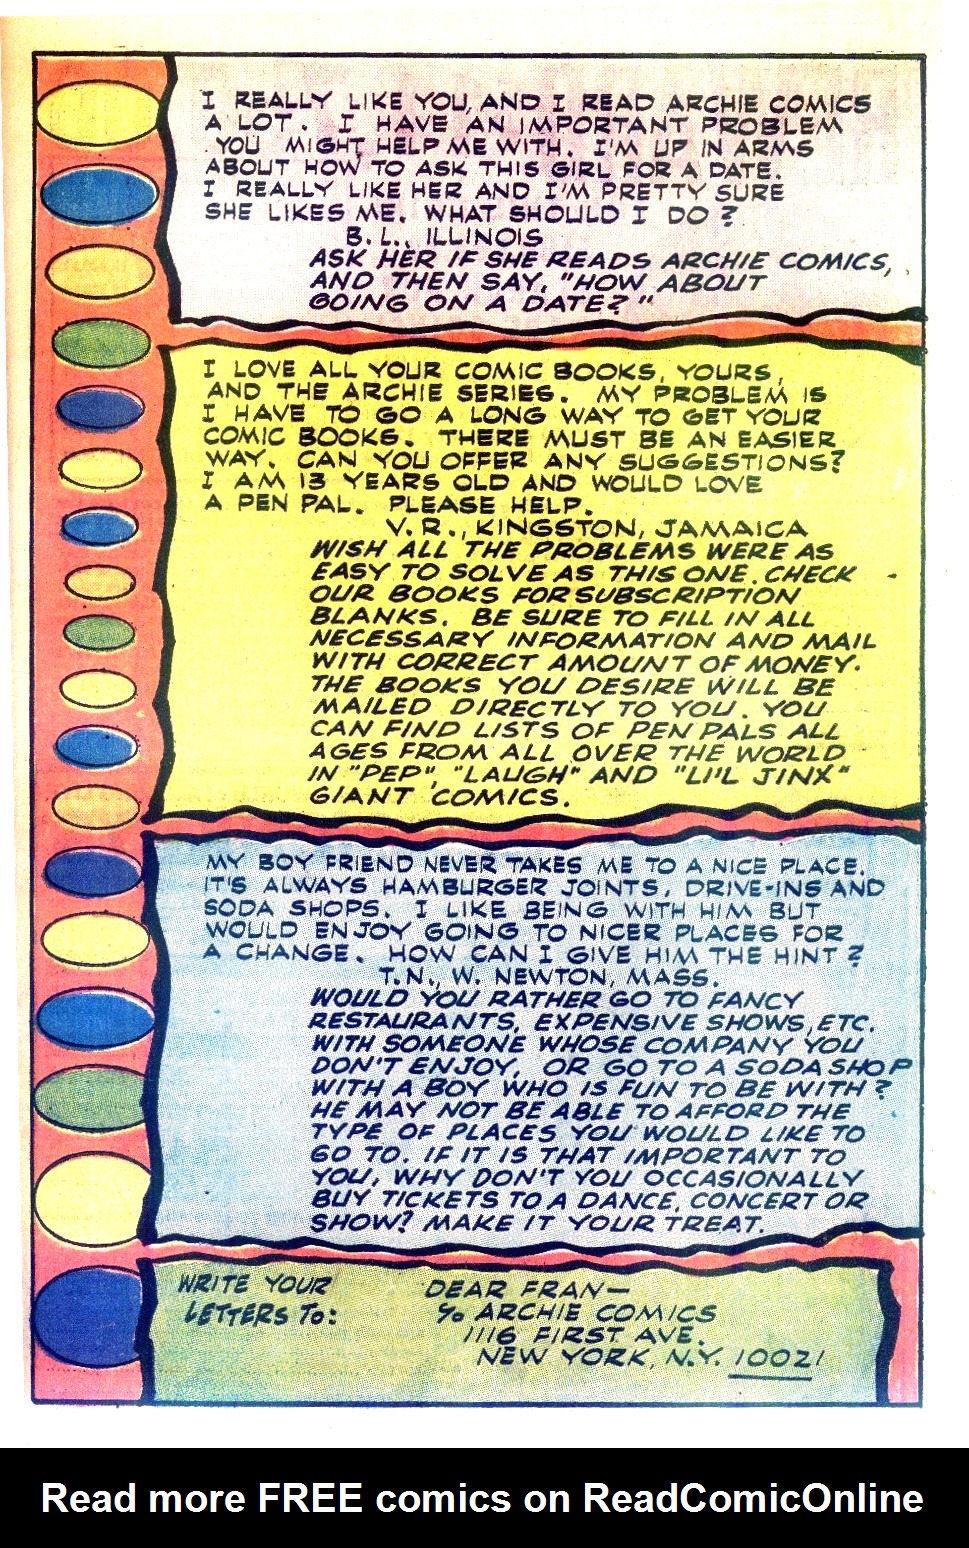 I REALLY LIKE YOU, AND I READ ARCHIE COMICS
A LOT. I HAVE AN IMPORTANT PROBLEM
YOU MIGHT HELP ME WITH. I'M UP IN ARMS
ABOUT HOW TO ASK THIS GIRL FOR A DATE.
I REALLY LIKE HER AND I'M PRETTY SURE
SHE LIKES ME. WHAT SHOULD I DO?
B.L., ILLINOIS
ASK HER IF SHE READS ARCHIE COMICS,
AND THEN SAY, "HOW ABOUT
GOING ON A DATE?"
I LOVE ALL YOUR COMIC BOOKS, YOURS,
AND THE ARCHIE SERIES. MY PROBLEM IS
I HAVE TO GO A LONG WAY TO GET YOUR
COMIC BOOKS. THERE MUST BE AN EASIER
WAY. CAN YOU OFFER ANY SUGGESTIONS?
I AM 13 YEARS OLD AND WOULD LOVE
A PEN PAL. PLEASE HELP.
V.R., KINGSTON, JAMAICA
WISH ALL THE PROBLEMS WERE AS
EASY TO SOLVE AS THIS ONE. CHECK
OUR BOOKS FOR SUBSCRIPTION
BLANKS. BE SURE TO FILL IN ALL
NECESSARY INFORMATION AND MAIL
WITH CORRECT AMOUNT OF MONEY.
THE BOOKS YOU DESIRE WILL BE
MAILED DIRECTLY TO YOU. YOU
CAN FIND LISTS OF PEN PALS ALL
AGES FROM ALL OVER THE WORLD
IN "PEP", "LAUGH" AND "LI'L JINX"
GIANT COMICS.
MY BOY FRIEND NEVER TAKES ME TO A NICE PLACE.
IT'S ALWAYS HAMBURGER JOINTS, DRIVE-INS AND
SODA SHOPS. I LIKE BEING WITH HIM BUT
WOULD ENJOY GOING TO NICER PLACES FOR
A CHANGE. HOW CAN I GIVE HIM THE HINT?
T.N., W. NEWTON, MASS.
WOULD YOU RATHER GO TO FANCY
RESTAURANTS, EXPENSIVE SHOWS, ETC.
WITH SOMEONE WHOSE COMPANY YOU
DON'T ENJOY, OR GO TO A SODA SHOP
WITH A BOY WHO IS FUN TO BE WITH?
HE MAY NOT BE ABLE TO AFFORD THE
TYPE OF PLACES YOU WOULD LIKE TO
GO TO. IF IT IS THAT IMPORTANT TO
YOU, WHY DON'T YOU OCCASIONALLY
BUY TICKETS TO A DANCE, CONCERT OR
SHOW? MAKE IT YOUR TREAT.
WRITE YOUR
LETTERS TO:
DEAR FRAN—
c/o ARCHIE COMICS
1116 FIRST AVE.
NEW YORK, N.Y. 10021
Read more FREE comics on ReadComicOnline